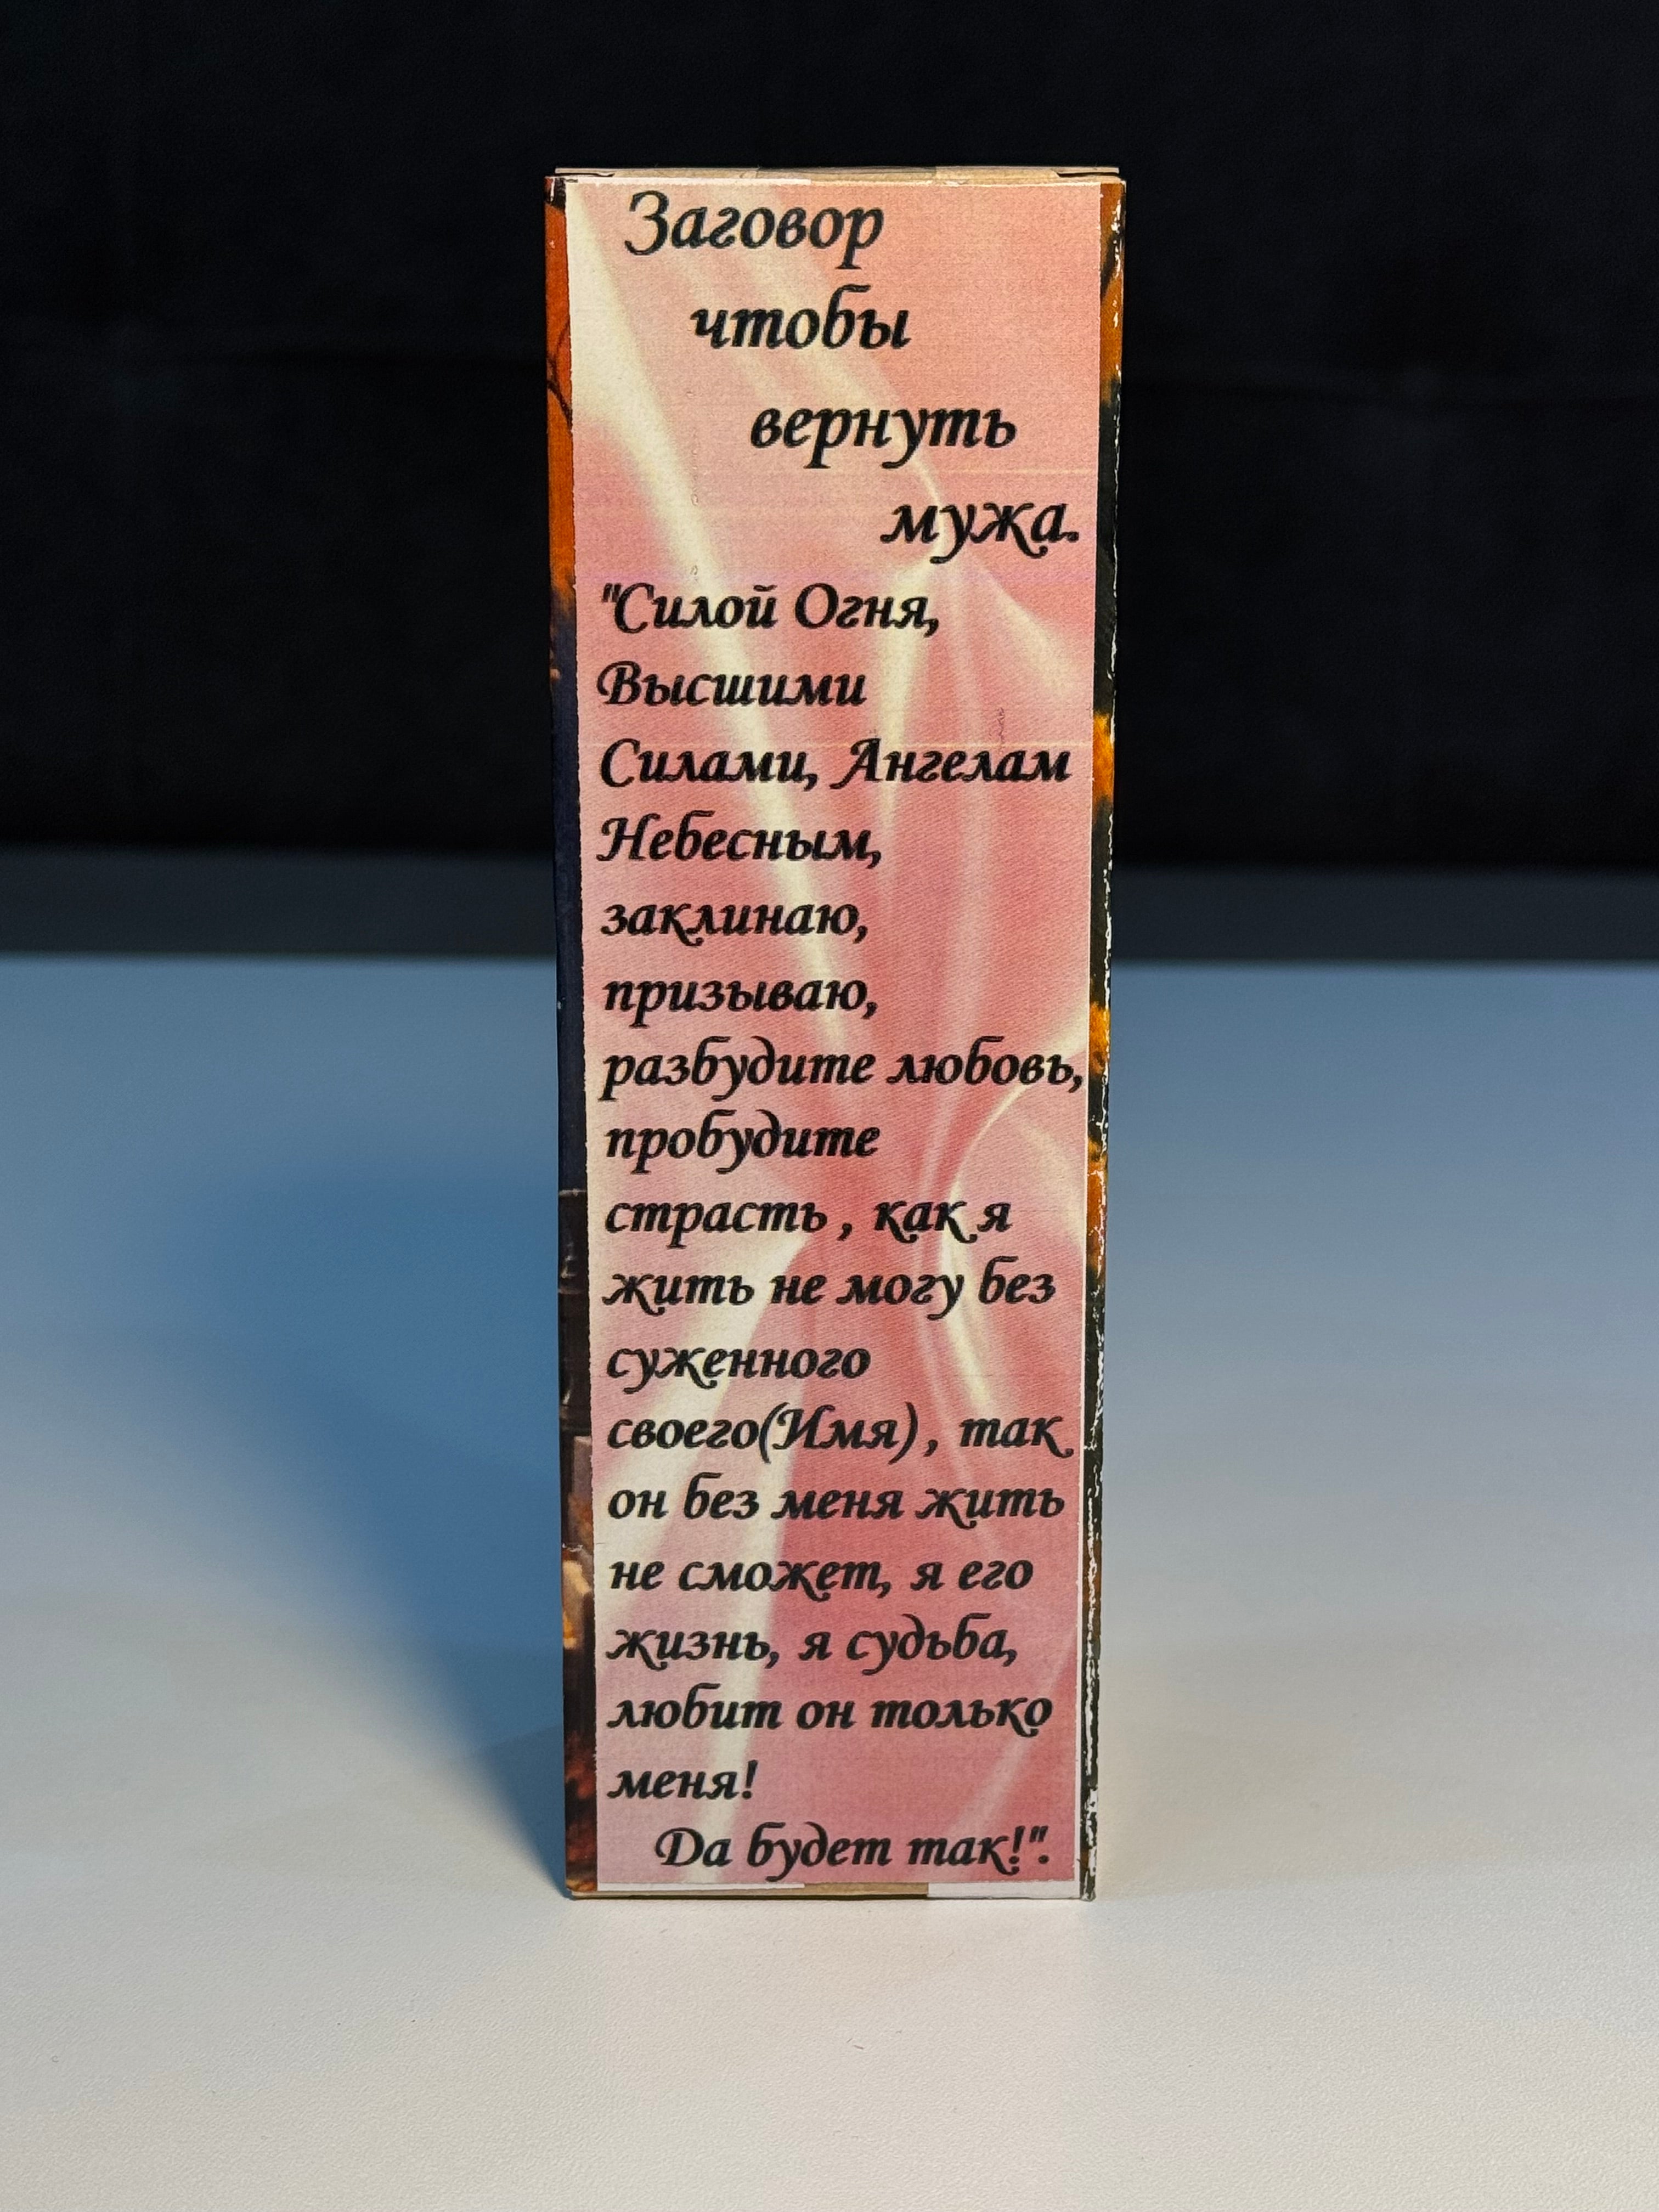 Заговор
чтобы
вернуть
мужа.
"Силой Огня,
Высшими
Силами, Ангелам
Небесным,
заклинаю,
призываю,
разбудите любовь,
пробудите
страсть , как я
жить не могу без
суженного
своего(Имя) , так
он без меня жить
не сможет, я его
жизнь, я судьба,
любит он только
меня!
Да будет так!".